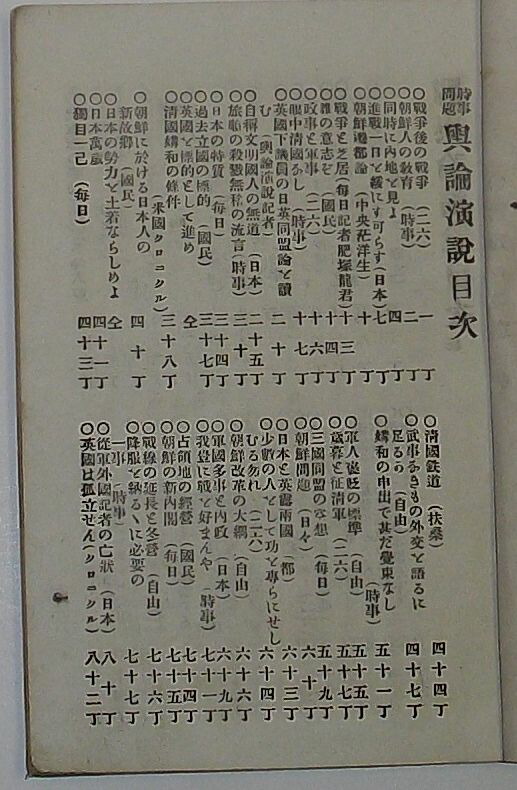 時事問題 輿論演説目次
○戰爭後の戰爭(二六) 一丁
○朝鮮人の教育(時事) 二丁
○同時に內地を見よ 四丁
○進戰一日も緩にす可らず(日本) 七丁
○朝鮮遷都論(中央茫洋生)
○戰爭と芝居(每日記者肥塚龍君) 十三丁
○誰の意志ぞ(國民) 十四丁
○政事と軍事(二六) 十六丁
○眼中清國なし(時事) 十七丁
○英國下議員の日英同盟論を讀む(輿論演說記者) 二十丁
○自稱文明國人の無道(日本) 二十五丁
○旅順の殺戮無稽の流言(時事) 三十丁
○日本の特質(每日) 三十四丁
○過去立國の標的(國民) 三十七丁
○英國を標的として進め 仝
○清國媾和の條件(米國クロニクル) 三十八丁
○朝鮮に於ける日本人の新故鄕(國民) 四十丁
○日本の勢力を土着ならしめよ 仝
○日本萬歲 四十一丁
○獨目一己(每日) 四十三丁
○清國鉄道(扶桑) 四十四丁
○武事なきもの外交を語るに足るの(自由) 四十七丁
○媾和の申出で甚だ覺束なし(時事) 五十一丁
○軍人褒貶の標準(自由) 五十五丁
○歲暮と征清軍(二六) 五十七丁
○三國同盟の空想(每日) 五十九丁
○朝鮮問題(日々) 六十丁
○日本と英露兩國(都) 六十三丁
○少數の人として功を專らにせしむる勿れ(二六) 六十四丁
○朝鮮改革の大綱(自由) 六十六丁
○軍國多事と內政(日本) 六十九丁
○我豈に戰を好まんや(時事) 七十一丁
○占領地の經營(國民) 七十四丁
○朝鮮の新內閣(每日) 七十五丁
○戰線の延長と冬營(自由)
○降服を納るゝに必要の一事(時事) 七十七丁
○從軍外國記者の亡狀(日本) 八十丁
○英國は孤立せん(クロニクル) 八十二丁